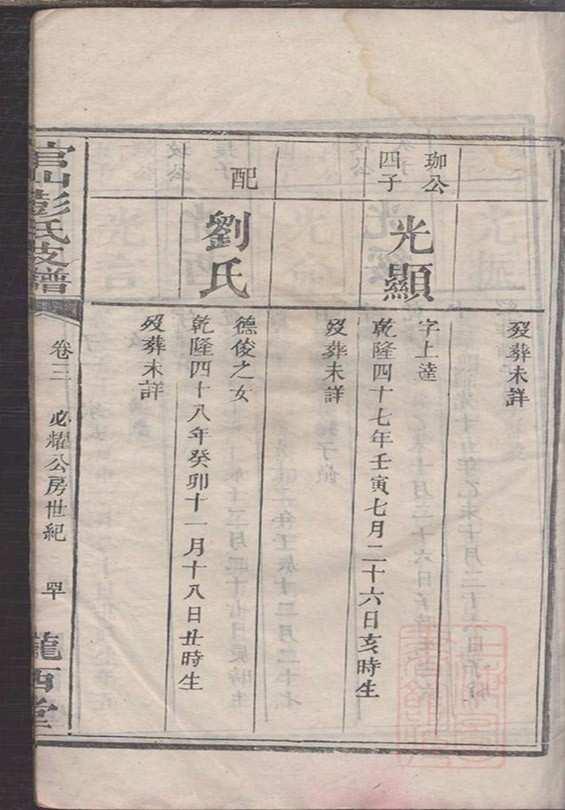 歿葬未詳
珈公
四子
光顯
字上達
乾隆四十七年壬寅七月二十六日亥時生
歿葬未詳
配
劉氏
德俊之女
乾隆四十八年癸卯十一月十八日丑時生
歿葬未詳
官山彭氏支譜
卷三
必耀公房世紀
隴西堂